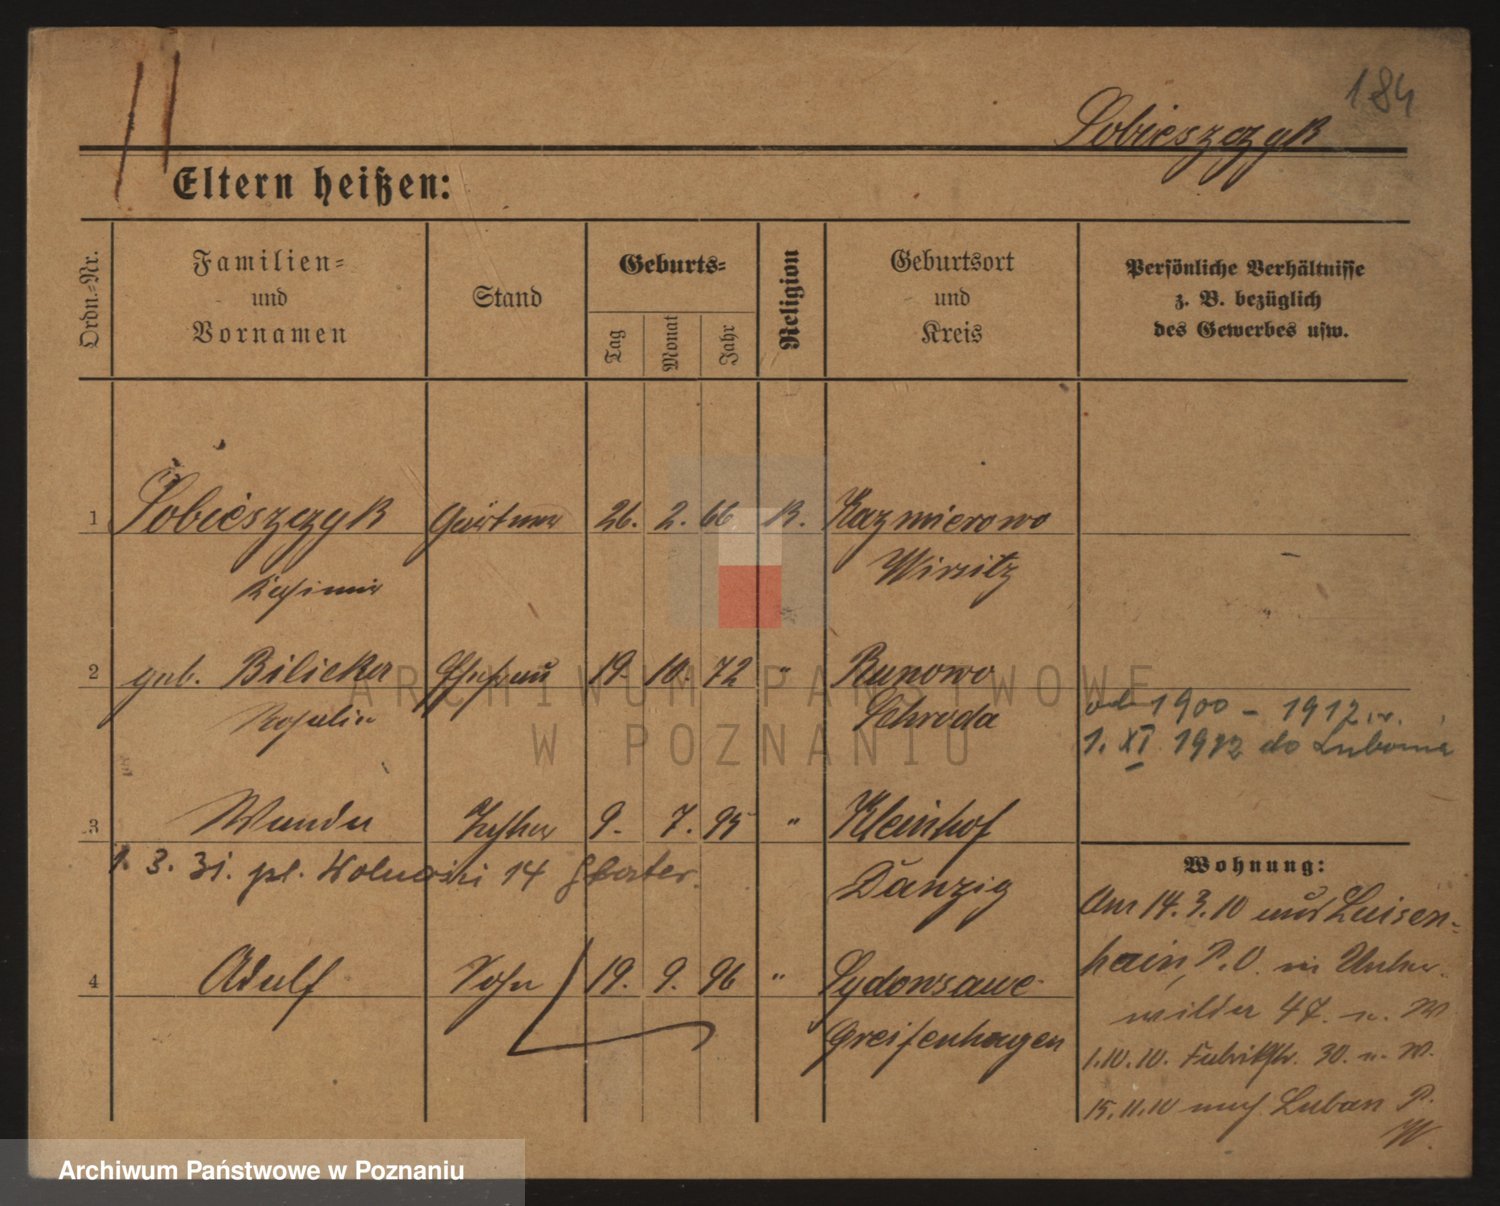 184
Sobieszczyk
Eltern heißen:
Ordn.-Nr.
Familien-
und
Vornamen
Stand
Geburts-
Tag
Monat
Jahr
Religion
Geburtsort
und
Kreis
Persönliche Verhältnisse
z. B. bezüglich
des Gewerbes usw.
1 Sobieszczyk Gärtner 26. 2. 66 K. Kazmierowo
Kasimir Wirsitz
2 geb. Bilicka Ehefrau 19. 10. 72 " Runowo
Rosalie Schroda
od 1900 - 1912 r.
1. XI 1912 do Lubonia
3 Wanda Tochter 9. 7. 95 " Kleinhof
1. 3. 31. pl. Wolności 14
Danzig
4 Adolf Sohn 19. 9. 96 " Sydowsaue
Greifenhagen
Wohnung:
Am 14.3.10 nach Luisen-
hain, P.O. in Unter-
wilda 47. n. W.
1.10.10. Fabrikstr. 30. n. W.
15.11.10 nach Luban P.
W.
ARCHIWUM PAŃSTWOWE
W POZNANIU
Archiwum Państwowe w Poznaniu